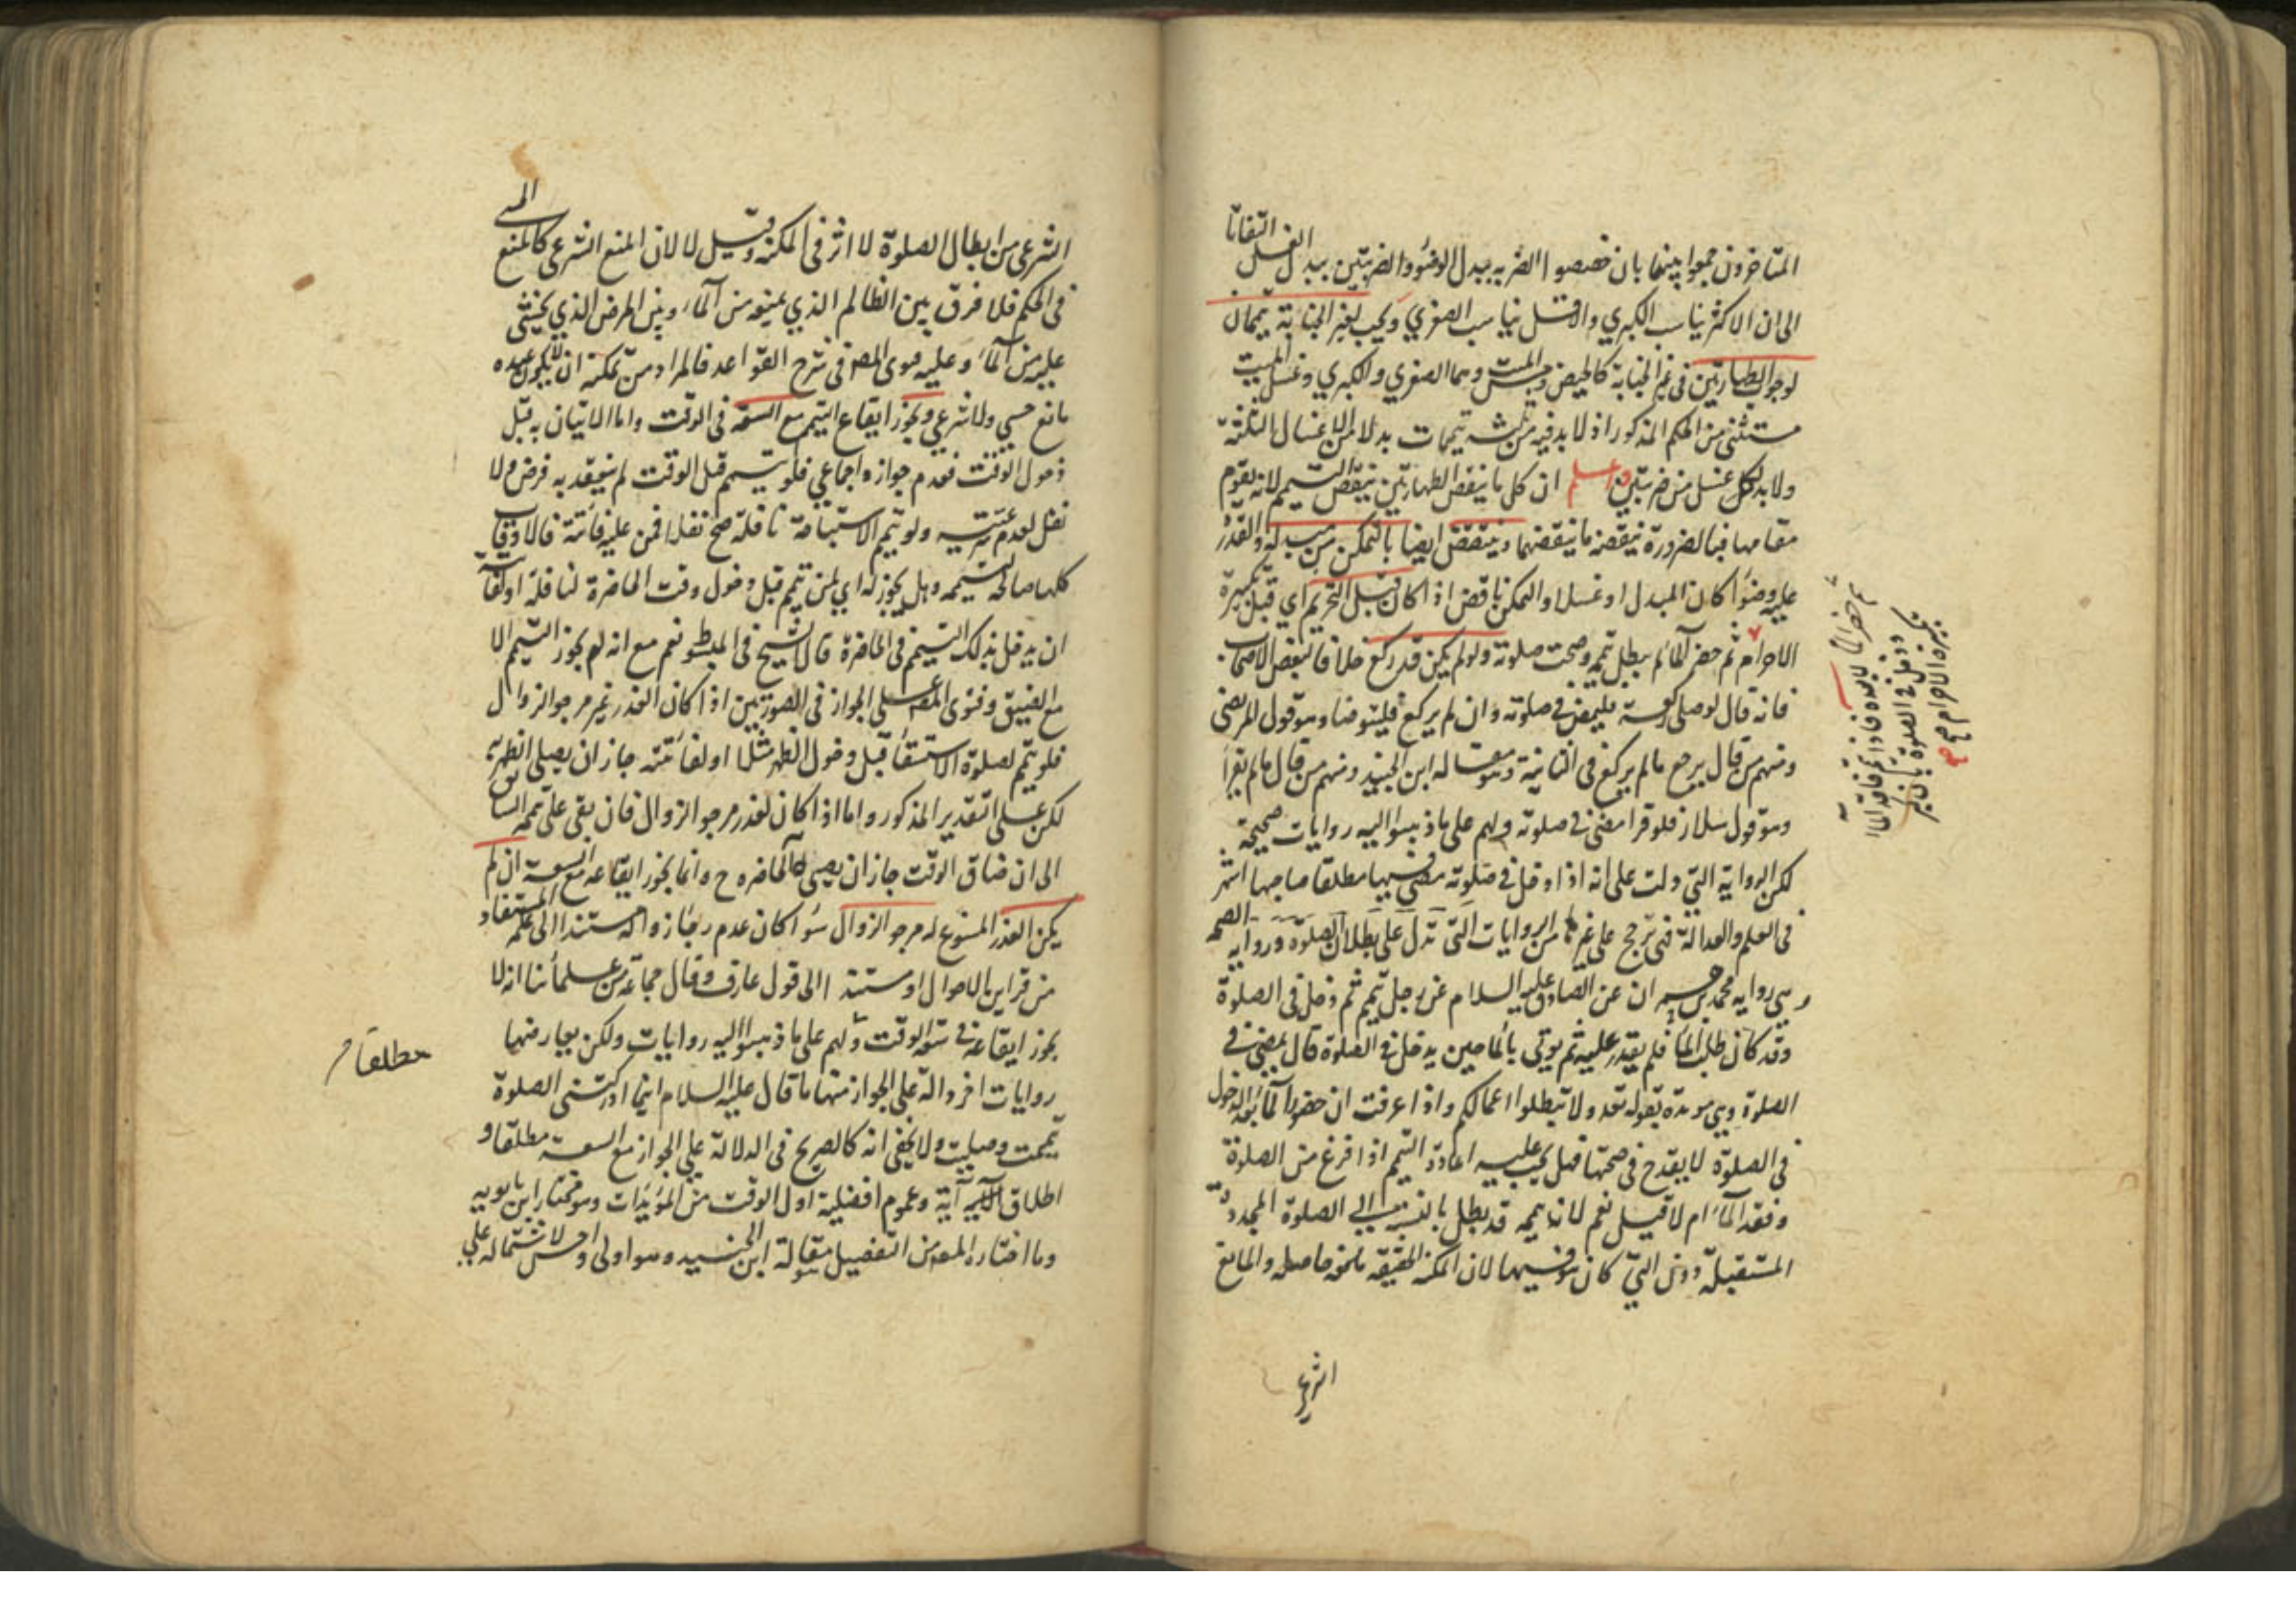 المتاخرون جمعوا بينهما بان خصصوا الضربه ببدل الوضوء والضربتين ببدل الغسل التفاتا
الى ان الاكثر يناسب الكبري والاقل يناسب الصغري ويجب لغير الجنابة تيممان
لوجوب الطهارتين في غير الجنابة كالحيض ومس الميت وهما الصغري والكبري وغسل الميت
مستثنى من الحكم المذكور اذ لا بد فيه من ثلثه تيممات بدلا من الاغسال الثلثة
ولا بد لكل غسل من ضربتين واعلم ان كل ما ينقض الطهارتين ينقض التيمم لانه يقوم
مقامها فبالضرورة ينقضه ما ينقضهما وينتقض ايضا بالتمكن من مبدله والقدرة
عليه وضوءا كان المبدل او غسلا والتمكن ناقض اذا كان قبل التحريم اي قبل تكبيرة
الاحرام ثم حضر الماء لم يبطل تيممه وصحت صلوته ولو لم يكن قد ركع خلافا لبعض الاصحاب
فانه قال لو صلى ركعة فليمض في صلوته وان لم يركع فليتوضا وهو قول المرتضى
ومنهم من قال يرجع ما لم يركع في الثانية وهو مقاله ابن الجنيد ومنهم من قال ما لم يقرا
وهو قول سلار فلو قرا مضى في صلوته ولهم على ما ذهبوا اليه روايات صحيحة
لكن الرواية التي دلت على انه اذا دخل في صلوته مضى فيها مطلقا صاحبها اشهر
في العلم والعدالة فهي ترجح على غيرها من الروايات التي تدل على بطلان الصلوة ورواية
هي رواية محمد بن حمران عن الصادق عليه السلام عن رجل تيمم ثم دخل في الصلوة
وقد كان طلب الماء فلم يقدر عليه ثم يوتى بالماء حين يدخل في الصلوة قال يمضي في
الصلوة وهي مويدة بقوله تعه ولا تبطلوا اعمالكم واذا عرفت ان حضور الماء بعد الدخول
في الصلوة لا يقدح في صحتها فهل يجب عليه اعادة التيمم اذا فرغ من الصلوة
وفقد الماء ام لا قيل نعم لان تيممه قد بطل بالنسبة الى الصلوة المجددة
المستقبلة دون التي كان هو فيها لان المكنة الحقيقة حاصله والمانع
الشرعي
الشرعي من ابطال الصلوة لا اثر في المكنه وقيل لا لان المنع الشرعي كالمنع الحسي
في الحكم فلا فرق بين الظالم الذي يمنعه من الماء وبين المرض الذي يخشى
عليه من الماء وعليه فتوى المصنف في شرح القواعد فالمراد من تمكنه ان لا يكون عنده
مانع حسي ولا شرعي ويجوز ايقاع التيمم مع السعة في الوقت واما الاتيان به قبل
دخول الوقت فعدم جوازه اجماعي فلو تيمم قبل الوقت لم ينعقد به فرض ولا
نفل لعدم شرعيته ولو تيمم لاستباحة نافلة صح نفلا فمن عليه فائتة فالاوقات
كلها صالحه لتيممه وهل يجوز له اي لمن تيمم قبل دخول وقت الحاضرة لنافلة او لفائتة
ان يدخل بذلك التيمم في الحاضرة قال الشيخ في المبسوط نعم مع انه لم يجوز التيمم الا
مع الضيق وفتوى المصنف على الجواز في الصورتين اذا كان العذر غير مرجو الزوال
فلو تيمم لصلوة الاستسقاء قبل دخول الظهر مثلا او لفائتة جاز ان يصلي الظهر به
لكن على التقدير المذكور واما اذا كان العذر مرجو الزوال فان بقى على تيممه السابق
الى ان ضاق الوقت جاز ان يصلي به الحاضره ح وانما يجوز ايقاعه مع السعة ان لم
يكن العذر المسوغ له مرجو الزوال سواء كان عدم رجاء زواله مستندا الى علمه المستفاد
من قراين الاحوال او مستندا الى قول عارف وقال جماعة من علمائنا انه لا
يجوز ايقاعه في سعة الوقت ولهم على ما ذهبوا اليه روايات ولكن يعارضها
روايات اخر دالة على الجواز منها ما قال عليه السلام اينما ادركتني الصلوة
تيممت وصليت ولا يخفى انه كالصريح في الدلالة على الجواز مع السعة مطلقا و
اطلاق الآية وعموم افضلية اول الوقت من المؤيدات وهو مختار ابن بابويه
وما اختاره المصنف من التفصيل مقالة ابن الجنيد وهو اولى واحسن لاشتماله على
مطلقا